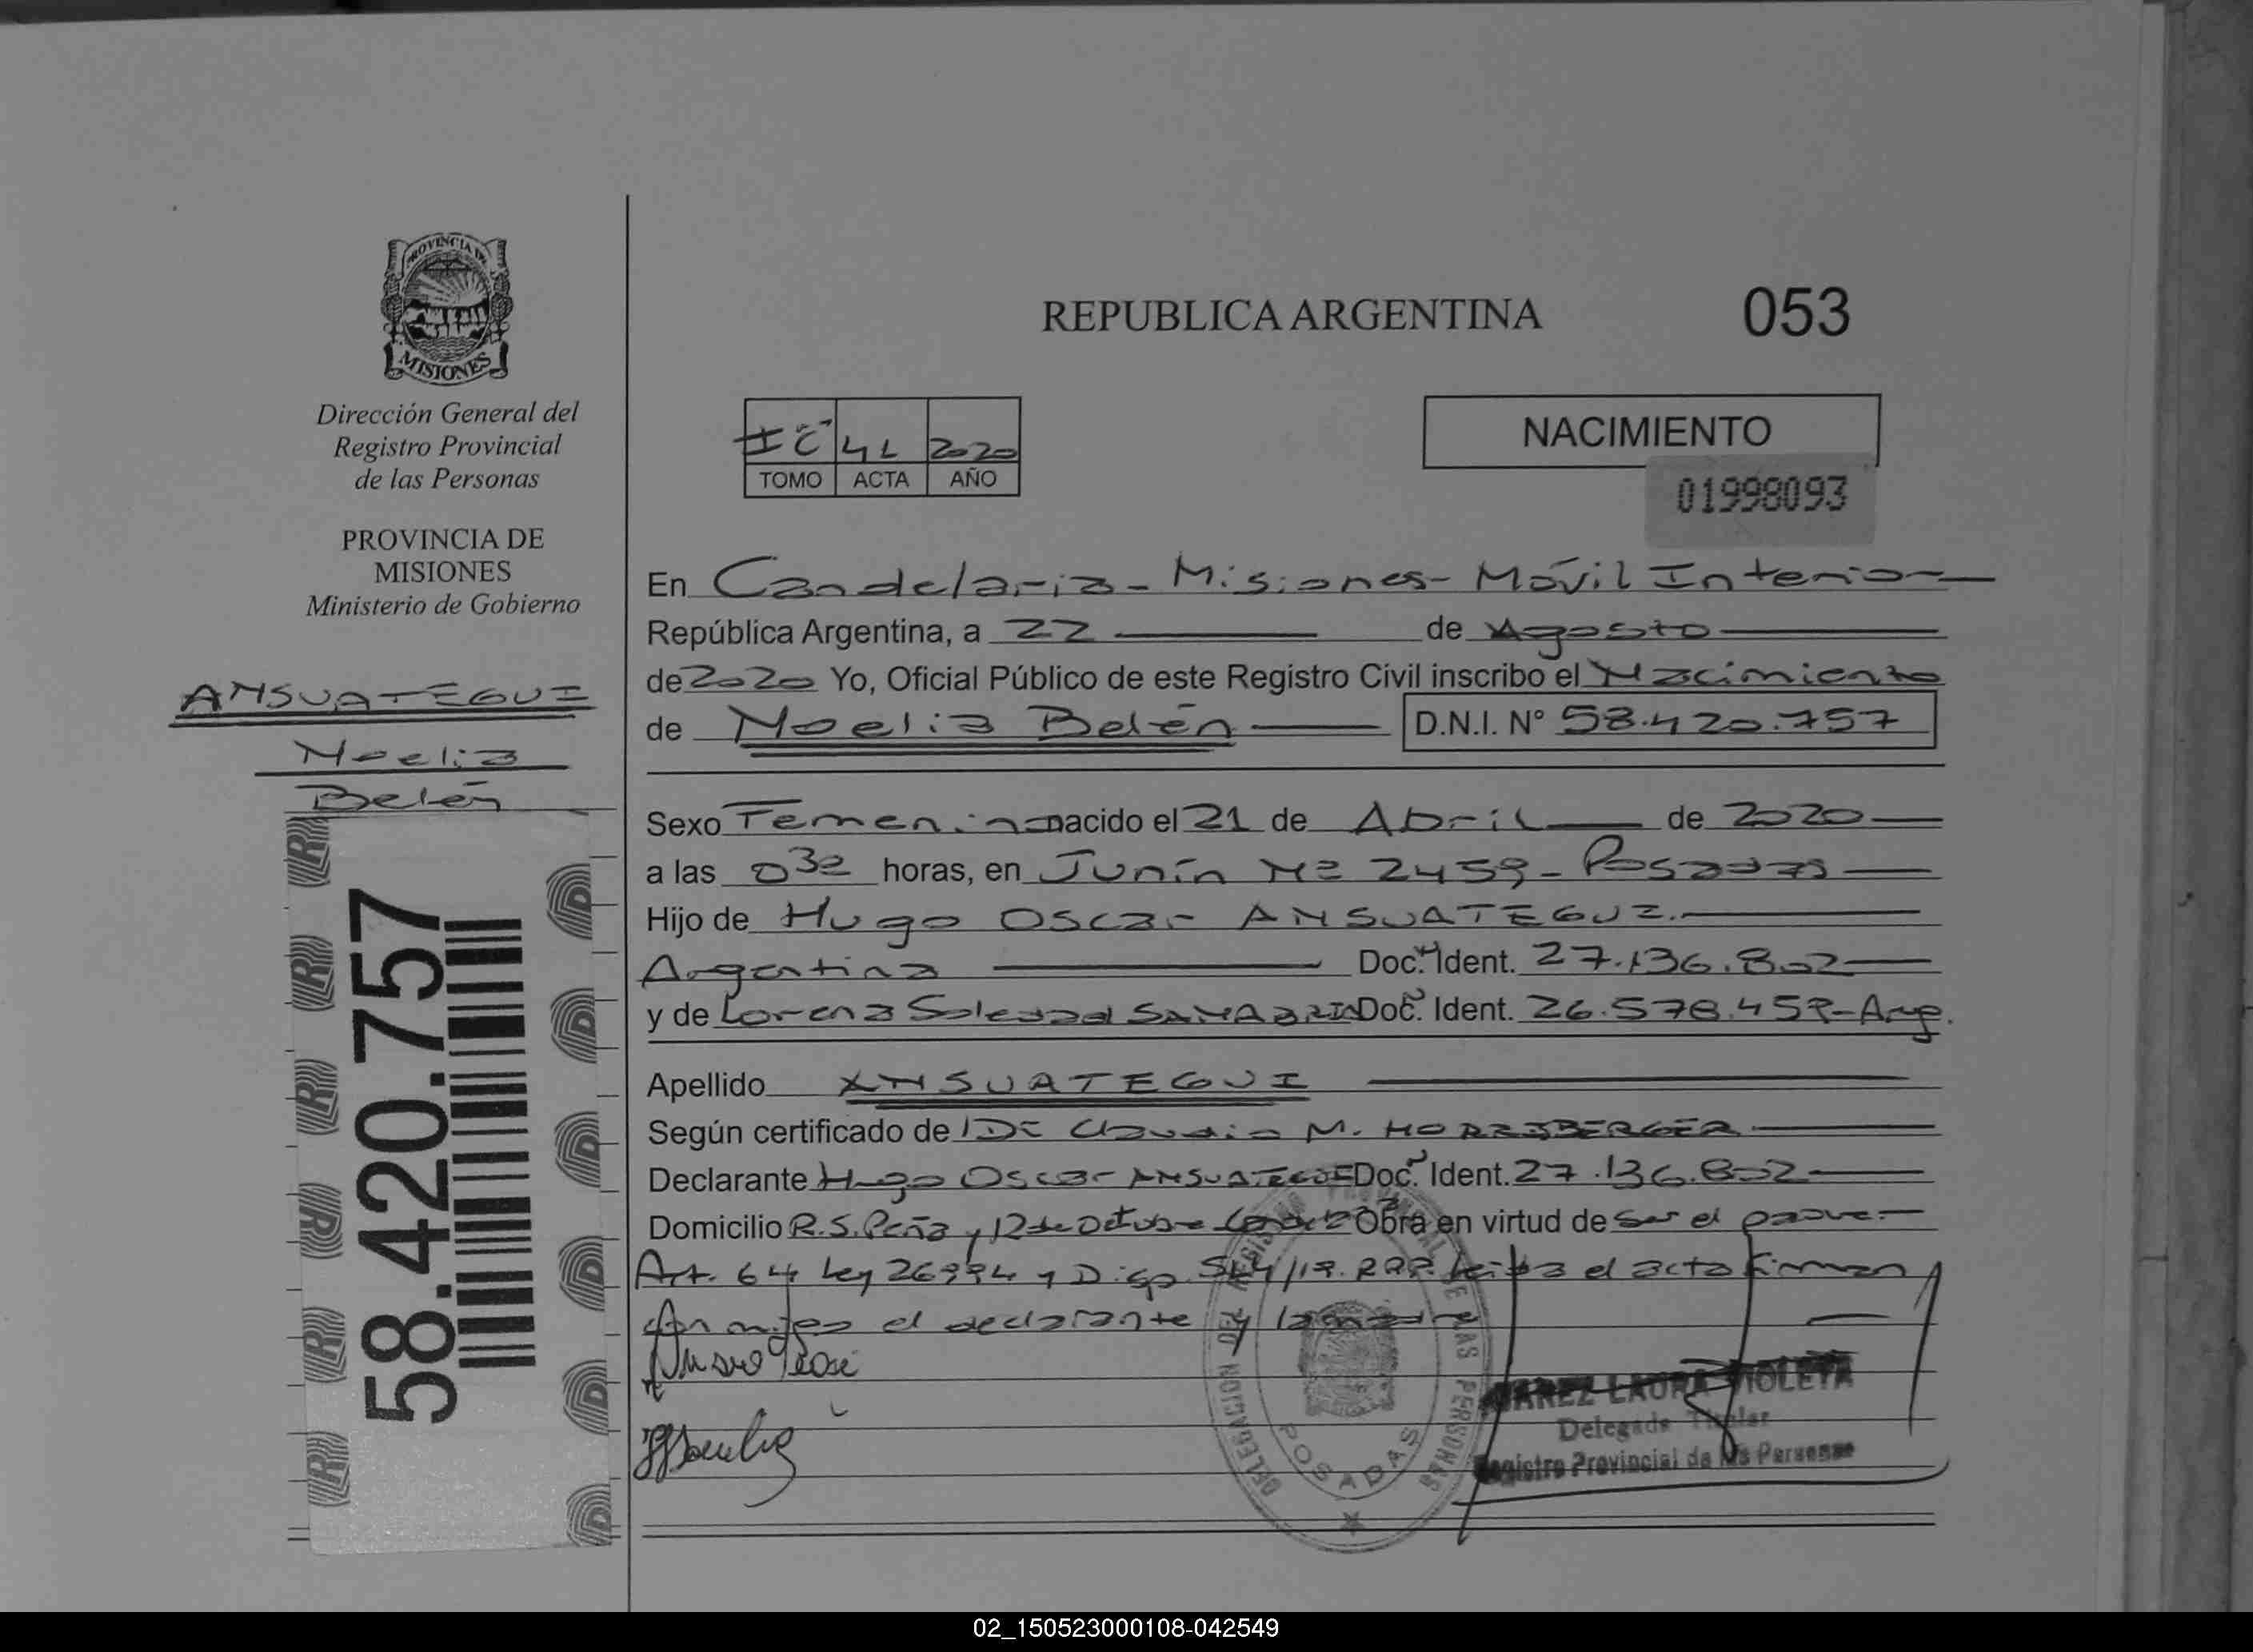 PROVINCIA DE
MISIONES
Dirección General del
Registro Provincial
de las Personas
PROVINCIA DE
MISIONES
Ministerio de Gobierno
ANSUATEGUI
Noelia
Belén
58.420.757
REPUBLICA ARGENTINA
053
2020
TOMO ACTA AÑO
NACIMIENTO
01998093
En Candelaria - Misiones - Móvil Interior
República Argentina, a 22 de Agosto
de 2020 Yo, Oficial Público de este Registro Civil inscribo el Nacimiento
de Noelia Belén D.N.I. N° 58.420.757
Sexo Femenino nacido el 21 de Abril de 2020
a las 032 horas, en Junín Nº 2459 - Posadas
Hijo de Hugo Oscar ANSUATEGUI.
Argentina Doc. Ident. 27.136.802
y de Lorena Soledad SANABRIA Doc. Ident. 26.578.459 - Arg.
Apellido ANSUATEGUI
Según certificado de Claudio M.
Declarante Hugo Oscar ANSUATEGUI Doc. Ident. 27.136.802
Domicilio R.S. Peña y 12 de Octubre Obra en virtud de ser el padre.-
Art. 64 Ley 26994 y Disp. /19. RPP leída el acta firman
con migo el declarante y la madre
DELEGACION REGISTRO PROVINCIAL DE LAS PERSONAS
POSADAS
LAURA VIOLETA
Delegada Titular
Registro Provincial de las Personas
02_150523000108-042549